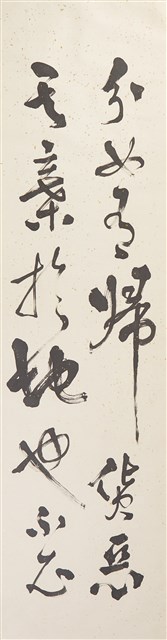 分女有歸貨惡
其棄於地也不必